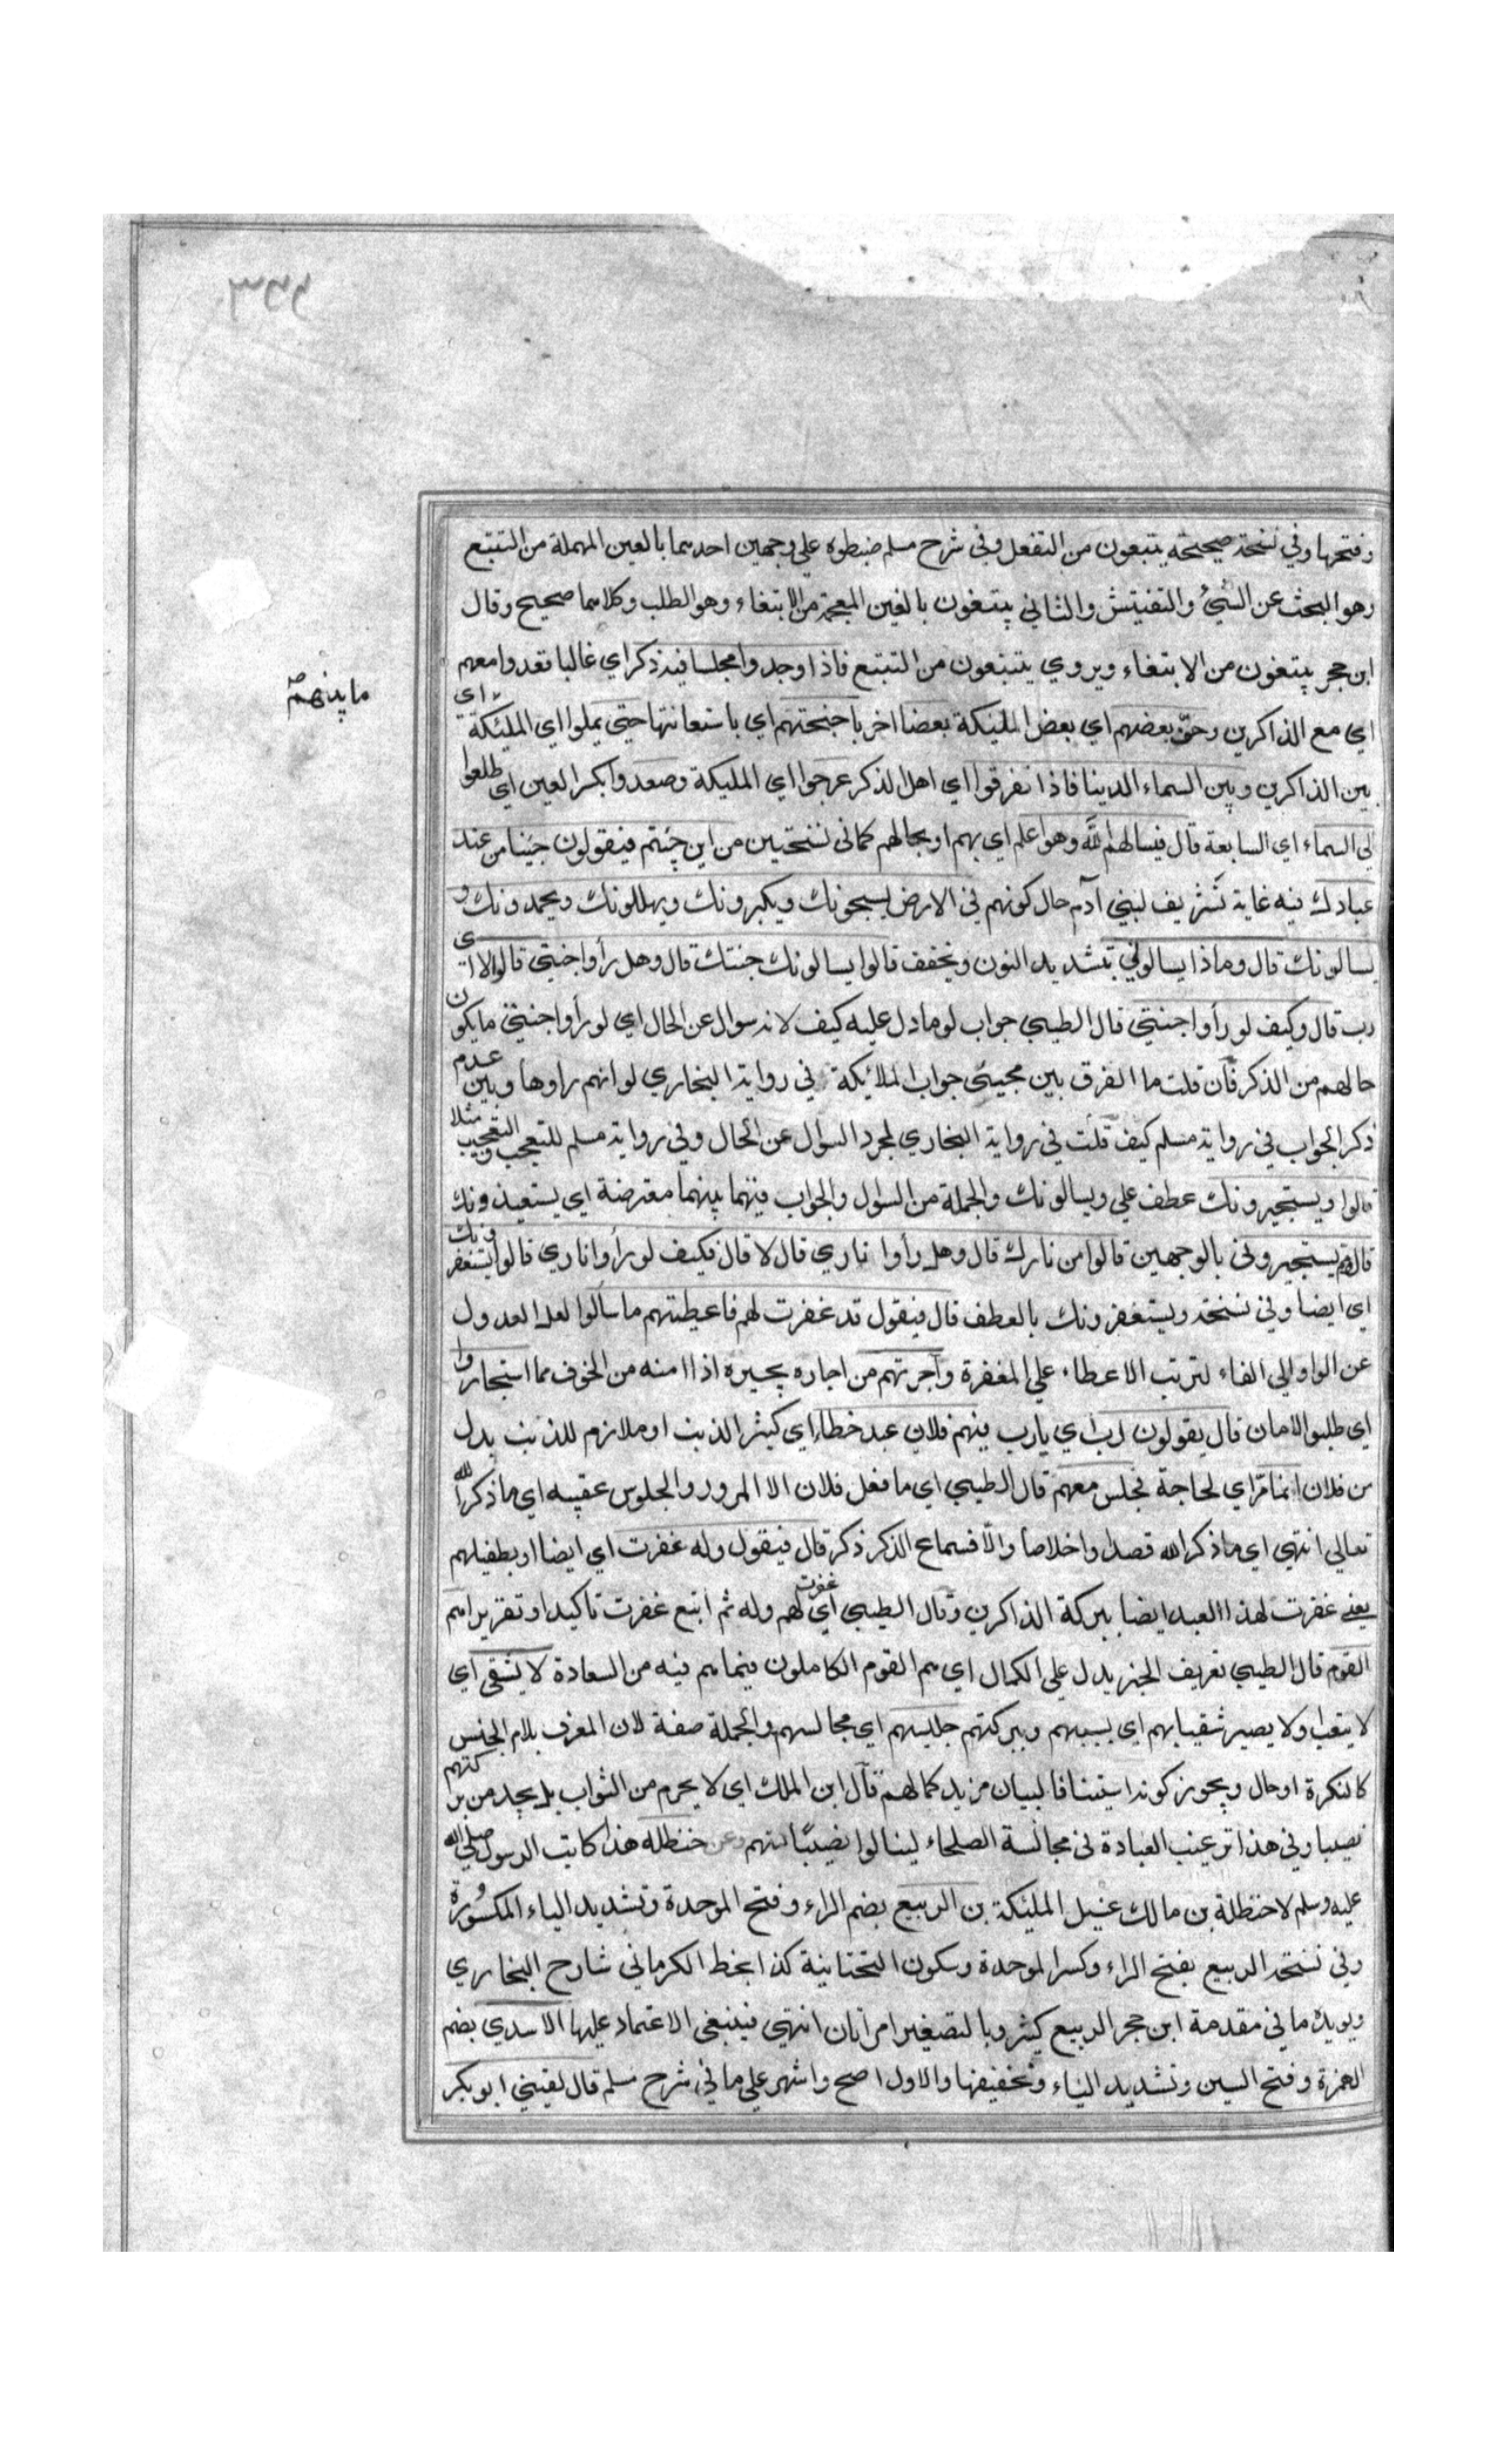 ٣٤٤
وفتحها وفي نسخة صحيحة يتبعون من التفعل وفي شرح مسلم ضبطوه علي وجهين احدهما بالعين المهملة من التتبع
وهو البحث عن الشيء والتفيتش والثاني يبتغون بالغين المعجمة من الابتغاء وهو الطلب وكلاهما صحيح وقال
ابن حجر يبتغون من الابتغاء ويروي يتتبعون من التتبع فاذا وجدوا مجلسا فيه ذكر اي غالبا قعدوا معهم
اي مع الذاكرين وحف بعضهم اي بعض المليكة بعضا اخر باجنحتهم اي باستعانتها حتي يملوا اي المليكة اي
ما بينهم صح
بين الذاكرين وبين السماء الدنيا فاذا تفرقوا اي اهل الذكر عرجوا اي المليكة وصعدوا بكسر العين اي طلعوا
الي السماء اي السابعة قال فيسالهم الله وهو اعلم اي بهم او بحالهم كما في نسختين من اين جئتم فيقولون جئنا من عند
عبادك فيه غاية تشريف لبني آدم حال كونهم في الارض يسبحونك ويكبرونك ويهللونك ويحمدونك و
يسالونك قال وماذا يسالوني بتشديد النون وتخفف قالوا يسالونك جنتك قال وهل رأوا جنتي قالوا لا اي
رب قال وكيف لو رأوا جنتي قال الطيبي جواب لو ما دل عليه كيف لانه سوال عن الحال اي لو رأوا جنتي ما يكون
حالهم من الذكر فان قلت ما الفرق بين مجيئ جواب الملائكة في رواية البخاري لو انهم راوها وبين عدم
ذكر الجواب في رواية مسلم كيف قلت في رواية البخاري لمجرد السوال عن الحال وفي رواية مسلم للتعجب والتعجيب مثلا
قالوا ويستجيرونك عطف علي ويسالونك والجملة من السوال والجواب فيهما بينهما معترضة اي يستعيذونك
قال ومم يستجيروني بالوجهين قالوا من نارك قال وهل رأوا ناري قال لا قال فكيف لو رأوا ناري قالوا يستغفرونك
اي ايضا وفي نسخة ويستغفرونك بالعطف قال فيقول قد غفرت لهم فاعطيتهم ما سألوا لعل العدول
عن الواو الي الفاء لترتب الاعطاء علي المغفرة وآجرتهم من اجاره يجيره اذا امنه من الخوف مما استجاروا
اي طلبوا الامان قال يقولون رب اي يارب فيهم فلان عبد خطاء اي كثير الذنب او ملازم للذنب بدل
من فلان انما مر اي لحاجة فجلس معهم قال الطيبي اي ما فعل فلان الا المرور والجلوس عقيبه اي ما ذكر الله
تعالي انتهي اي ما ذكر الله قصدا واخلاصا والا فسماع الذكر ذكر قال فيقول وله غفرت اي ايضا او بطفيلهم
يعني غفرت لهذا العبد ايضا ببركة الذاكرين وقال الطيبي اي غفرت لهم وله ثم اتبع غفرت تاكيدا وتقريرا هم
القوم قال الطيبي تعريف الخبر يدل علي الكمال اي هم القوم الكاملون فيما هم فيه من السعادة لا يشقي اي
لا يتعب ولا يصير شقيا بهم اي بسببهم وببركتهم جليسهم اي مجالسهم والجملة صفة لان المعرف بلام الجنس
كالنكرة او حال ويجوز كونه استينافا لبيان مزيد كمالهم قال ابن الملك اي لا يحرم من الثواب بل يجد من بركتهم
نصيبا وفي هذا ترغيب العبادة في مجالسة الصلحاء لينالوا نصيبا منهم وعن حنظلة هذا كاتب الرسول صلي الله
عليه وسلم لا حنظلة بن مالك غسيل المليكة بن الربيع بضم الراء وفتح الموحدة وتشديد الياء المكسورة
وفي نسخة الربيع بفتح الراء وكسر الموحدة وسكون التحتانية كذا بخط الكرماني شارح البخاري
ويويده ما في مقدمة ابن حجر الربيع كثير وبالتصغير امراتان انتهي فينبغي الاعتماد عليها الاسدي بضم
الهمزة وفتح السين وتشديد الياء وتخفيفها والاول اصح واشهر علي ما في شرح مسلم قال لقيني ابو بكر